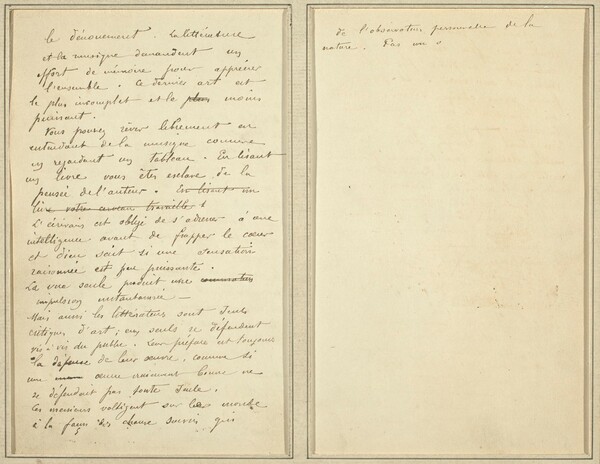 le dénouement. La littérature
et la musique demandent un
effort de mémoire pour apprécier
l'ensemble. Ce dernier art est
le plus incomplet et le plus moins
puissant.
Vous pouvez rêver librement en
entendant de la musique comme
en regardant un tableau. En lisant
un livre vous êtes esclave de la
pensée de l'auteur. En lisant un
livre votre cerveau travaille
L'écrivain est obligé de s'adresser à une
intelligence avant de frapper le cœur
et Dieu sait si une sensation
raisonnée est peu puissante.
La vue seule produit une
impulsion instantanée —
Mais aussi les littérateurs sont seuls
critiques d'art; eux seuls se défendent
vis à vis du public. Leur préface est toujours
la défense de leur œuvre, comme si
une œuvre vraiment bonne ne
se défendait pas toute seule.
Ces messieurs voltigent sur le monde
à la façon des chauve souris qui
de l'observation personnelle de la
nature. Pas un